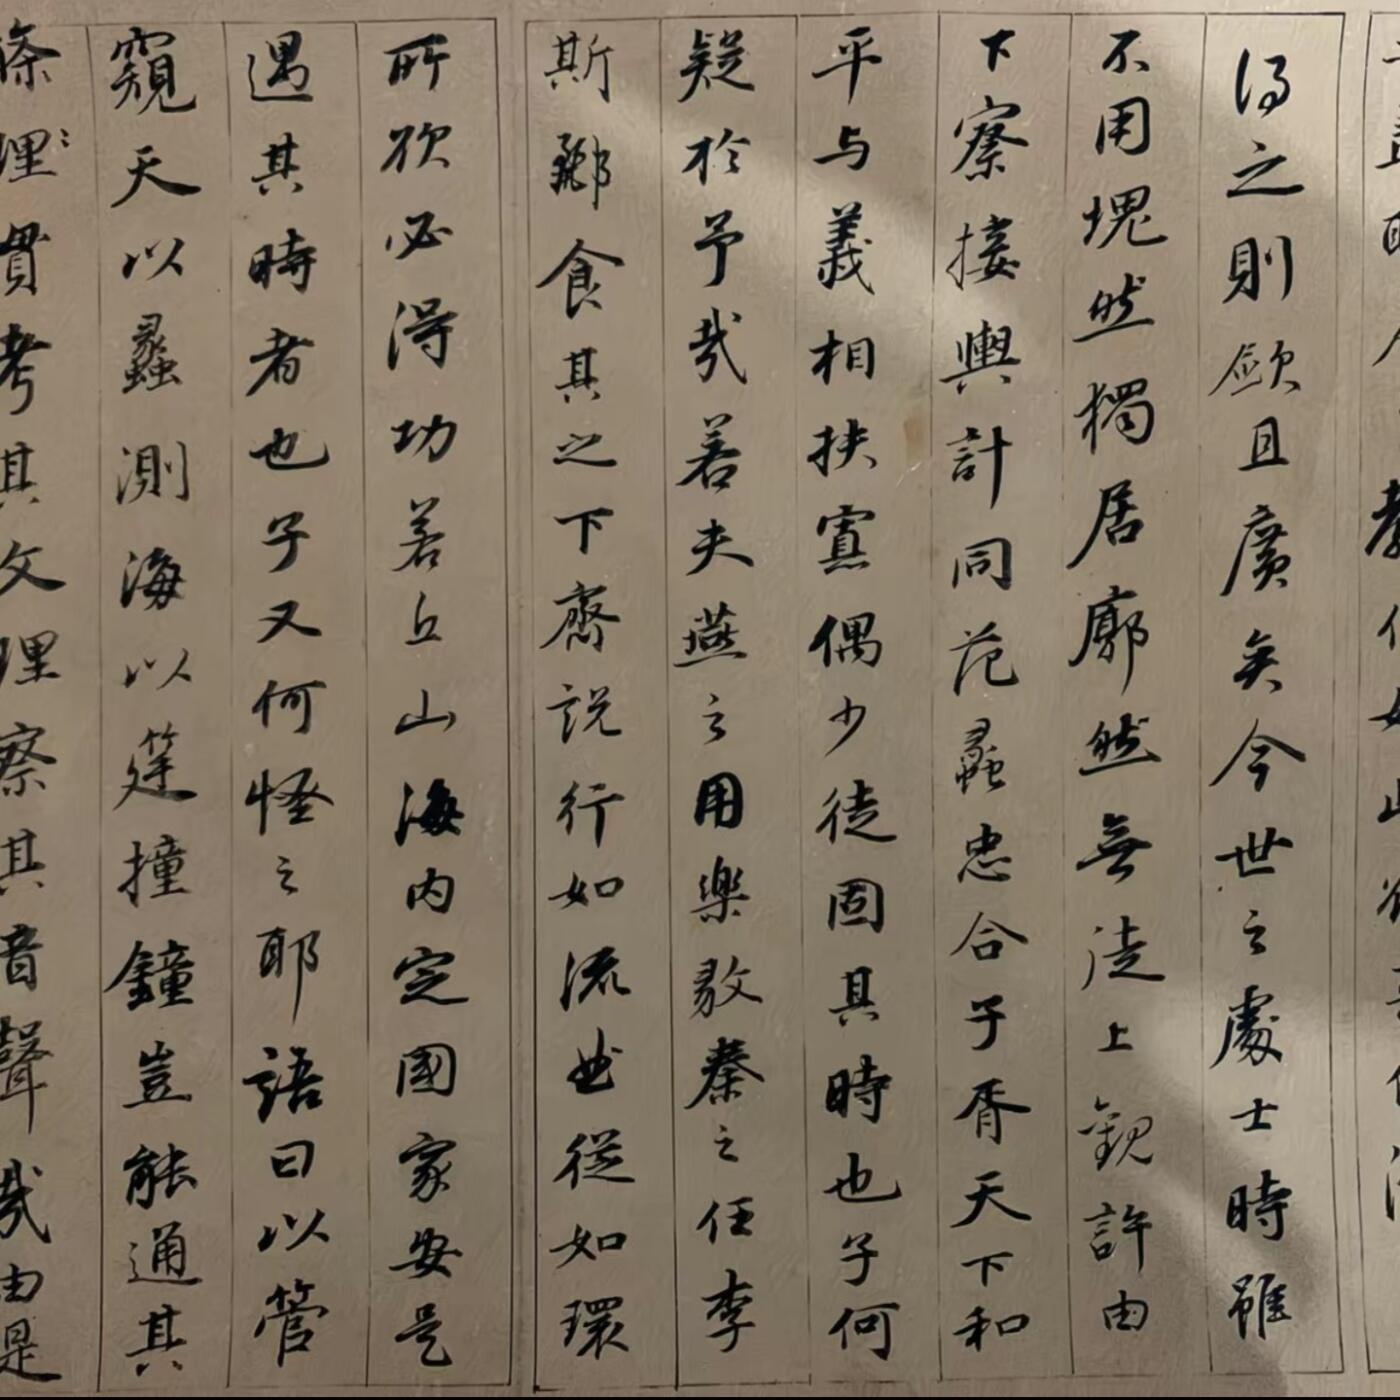 教化如此欲
得之則歛且廣矣今世之處士時雖
不用塊然獨居廓然無徒上觀許由
下察接輿計同范蠡忠合子胥天下和
平与義相扶寡偶少徒固其時也子何
疑於予哉若夫燕之用樂毅秦之任李
斯酈食其之下齋說行如流曲從如環
所欲必得功若丘山海內定國家安是
遇其時者也子又何怪之耶語曰以管
窺天以蠡測海以筳撞鐘豈能通其
條理貫考其文理察其音聲哉由是